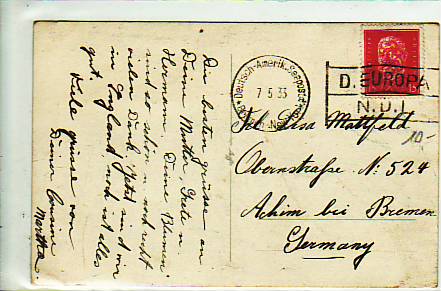 Die besten Grüsse an
Deine Mutter, Grete u.
Hermann. Deine Blumen
sind so schön u. noch recht
vielen Dank. Jetzt sind wir
in England, noch ist alles
gut.
Viele grüsse von
Deiner Cousine
Martha
Deutsch-Amerik. Seepost
Bremen - New
7 5 33
D. EUROPA
N.D.L
Frl. Lisa Mattfeld
Obernstraße N: 524
Achim bei Bremen
Germany
10-
15